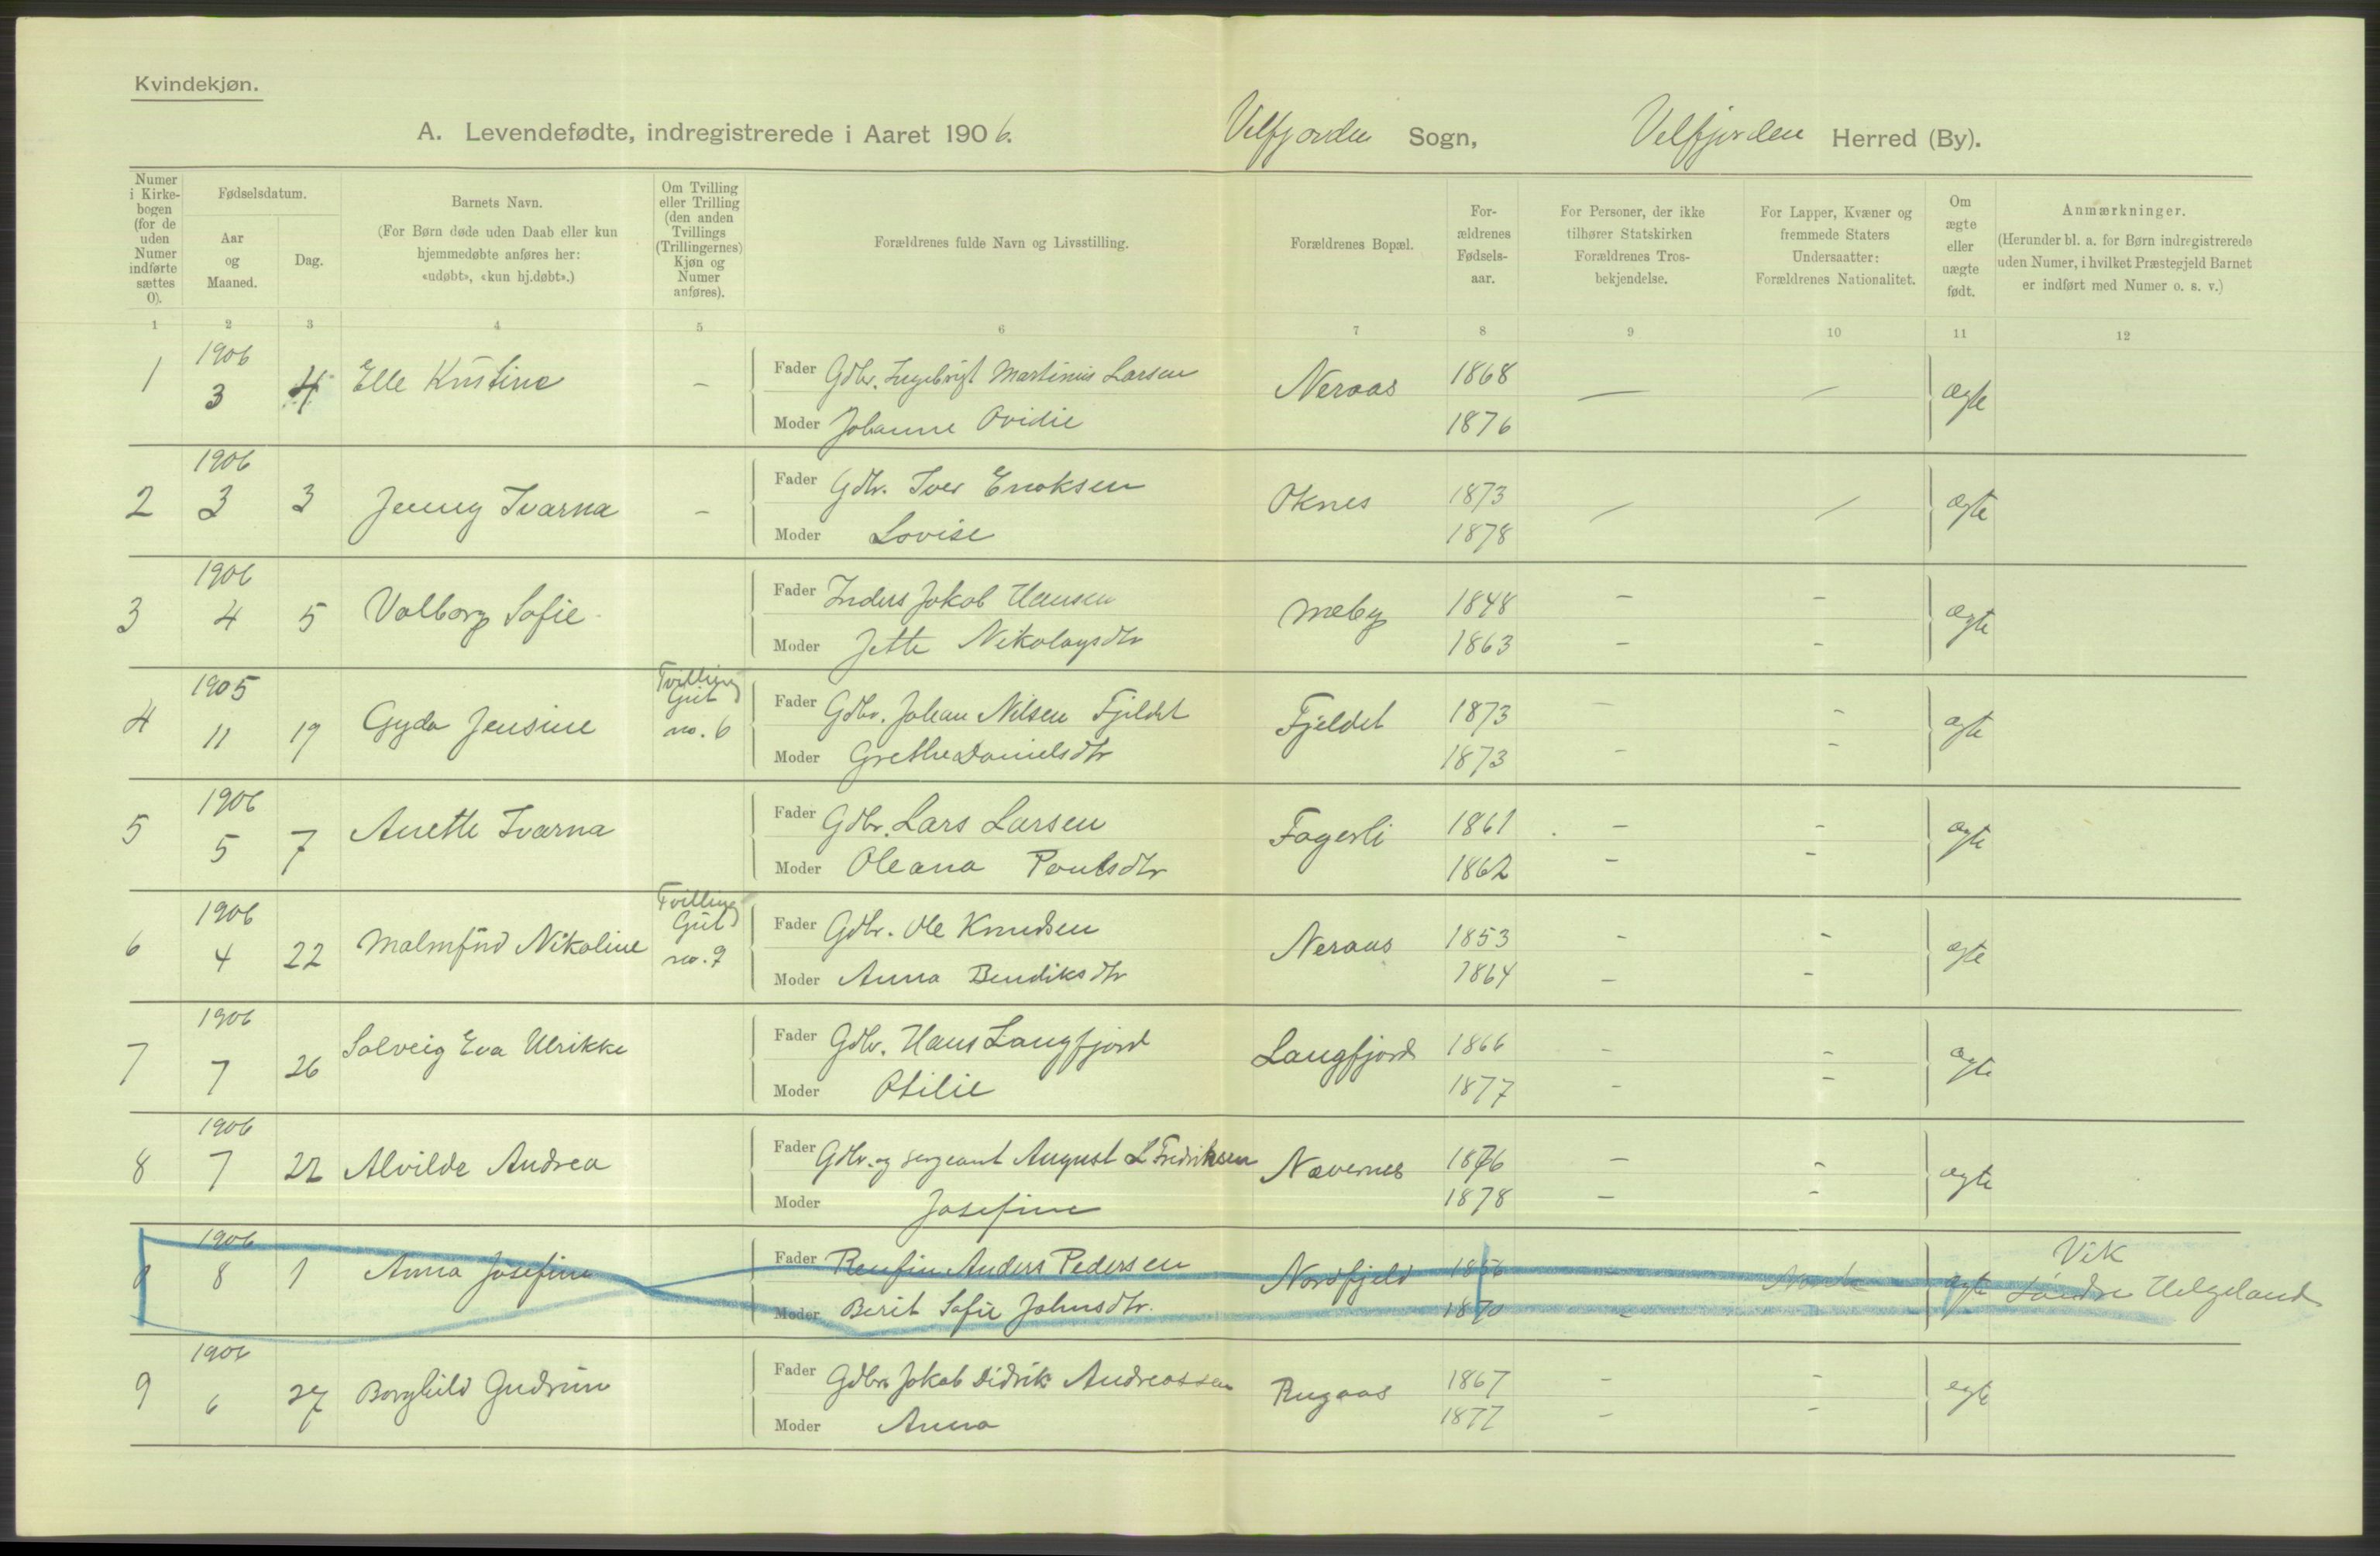 Kvindekjøn.
A. Levendefødte, indregistrerede i Aaret 1906. Velfjorden Sogn, Velfjorden Herred (By).
Numer i Kirkebogen (for de uden Numer indførte sættes 0).
Fødselsdatum.
Aar og Maaned.
Dag.
Barnets Navn.
(For Børn døde uden Daab eller kun hjemmedøbte anføres her: «udøbt», «kun hj.døbt».)
Om Tvilling eller Trilling (den anden Tvillings (Trillingernes) Kjøn og Numer anføres).
Forældrenes fulde Navn og Livsstilling.
Forældrenes Bopæl.
Forældrenes Fødselsaar.
For Personer, der ikke tilhører Statskirken Forældrenes Trosbekjendelse.
For Lapper, Kvæner og fremmede Staters Undersaatter: Forældrenes Nationalitet.
Om ægte eller uægte født.
Anmærkninger.
(Herunder bl. a. for Børn indregistrerede uden Numer, i hvilket Præstegjeld Barnet er indført med Numer o. s. v.)
1 2 3 4 5 6 7 8 9 10 11 12
1 1906 3 4 Elle Kristine - Fader Gdbr. Ingebrigt Martinus Larsen Neraas 1868 - - ægte
Moder Johanne Ovidie 1876
2 1906 3 3 Jenny Ivarna - Fader Gdbr. Iver Enoksen Oknes 1873 - - ægte
Moder Lovise 1878
3 1906 4 5 Valborg Sofie Fader Inders Jakob Hansen Mæby 1848 - - ægte
Moder Jette Nikolaysdtr 1863 - -
4 1905 11 19 Gyda Jensine Tvilling Gut no. 6 Fader Gdbr. Johan Nilsen Fjeldet Fjeldet 1873 - - ægte
Moder Grethe Danielsdtr 1873 - -
5 1906 5 7 Anette Ivarna Fader Gdbr. Lars Larsen Fagerli 1861 - - ægte
Moder Oleana Poulsdtr 1862 - -
6 1906 4 22 Malmfrid Nikoline Tvilling Gut no. 9 Fader Gdbr. Ole Knudsen Neraas 1853 - - ægte
Moder Anna Bendiksdtr 1864 - -
7 1906 7 26 Solveig Eva Ulrikke Fader Gdbr. Hans Langfjord Langfjord 1866 - - ægte
Moder Otilie 1877 - -
8 1906 7 22 Alvilde Andrea Fader Gdbr. og sergeant August L Fredriksen Nævernes 1876 - - ægte
Moder Josefine 1878 - -
1906 8 1 Anna Josefine Fader Renfin Anders Pedersen Nordfjeld - Norsk ægte Vik Søndre Helgeland
Moder Berit Sofie Johnsdtr. 1870 - -
9 1906 6 27 Borghild Gudrun Fader Gdbr. Jakob Didrik Andreassen Rugaas 1867 - - ægte
Moder Anna 1877 - -